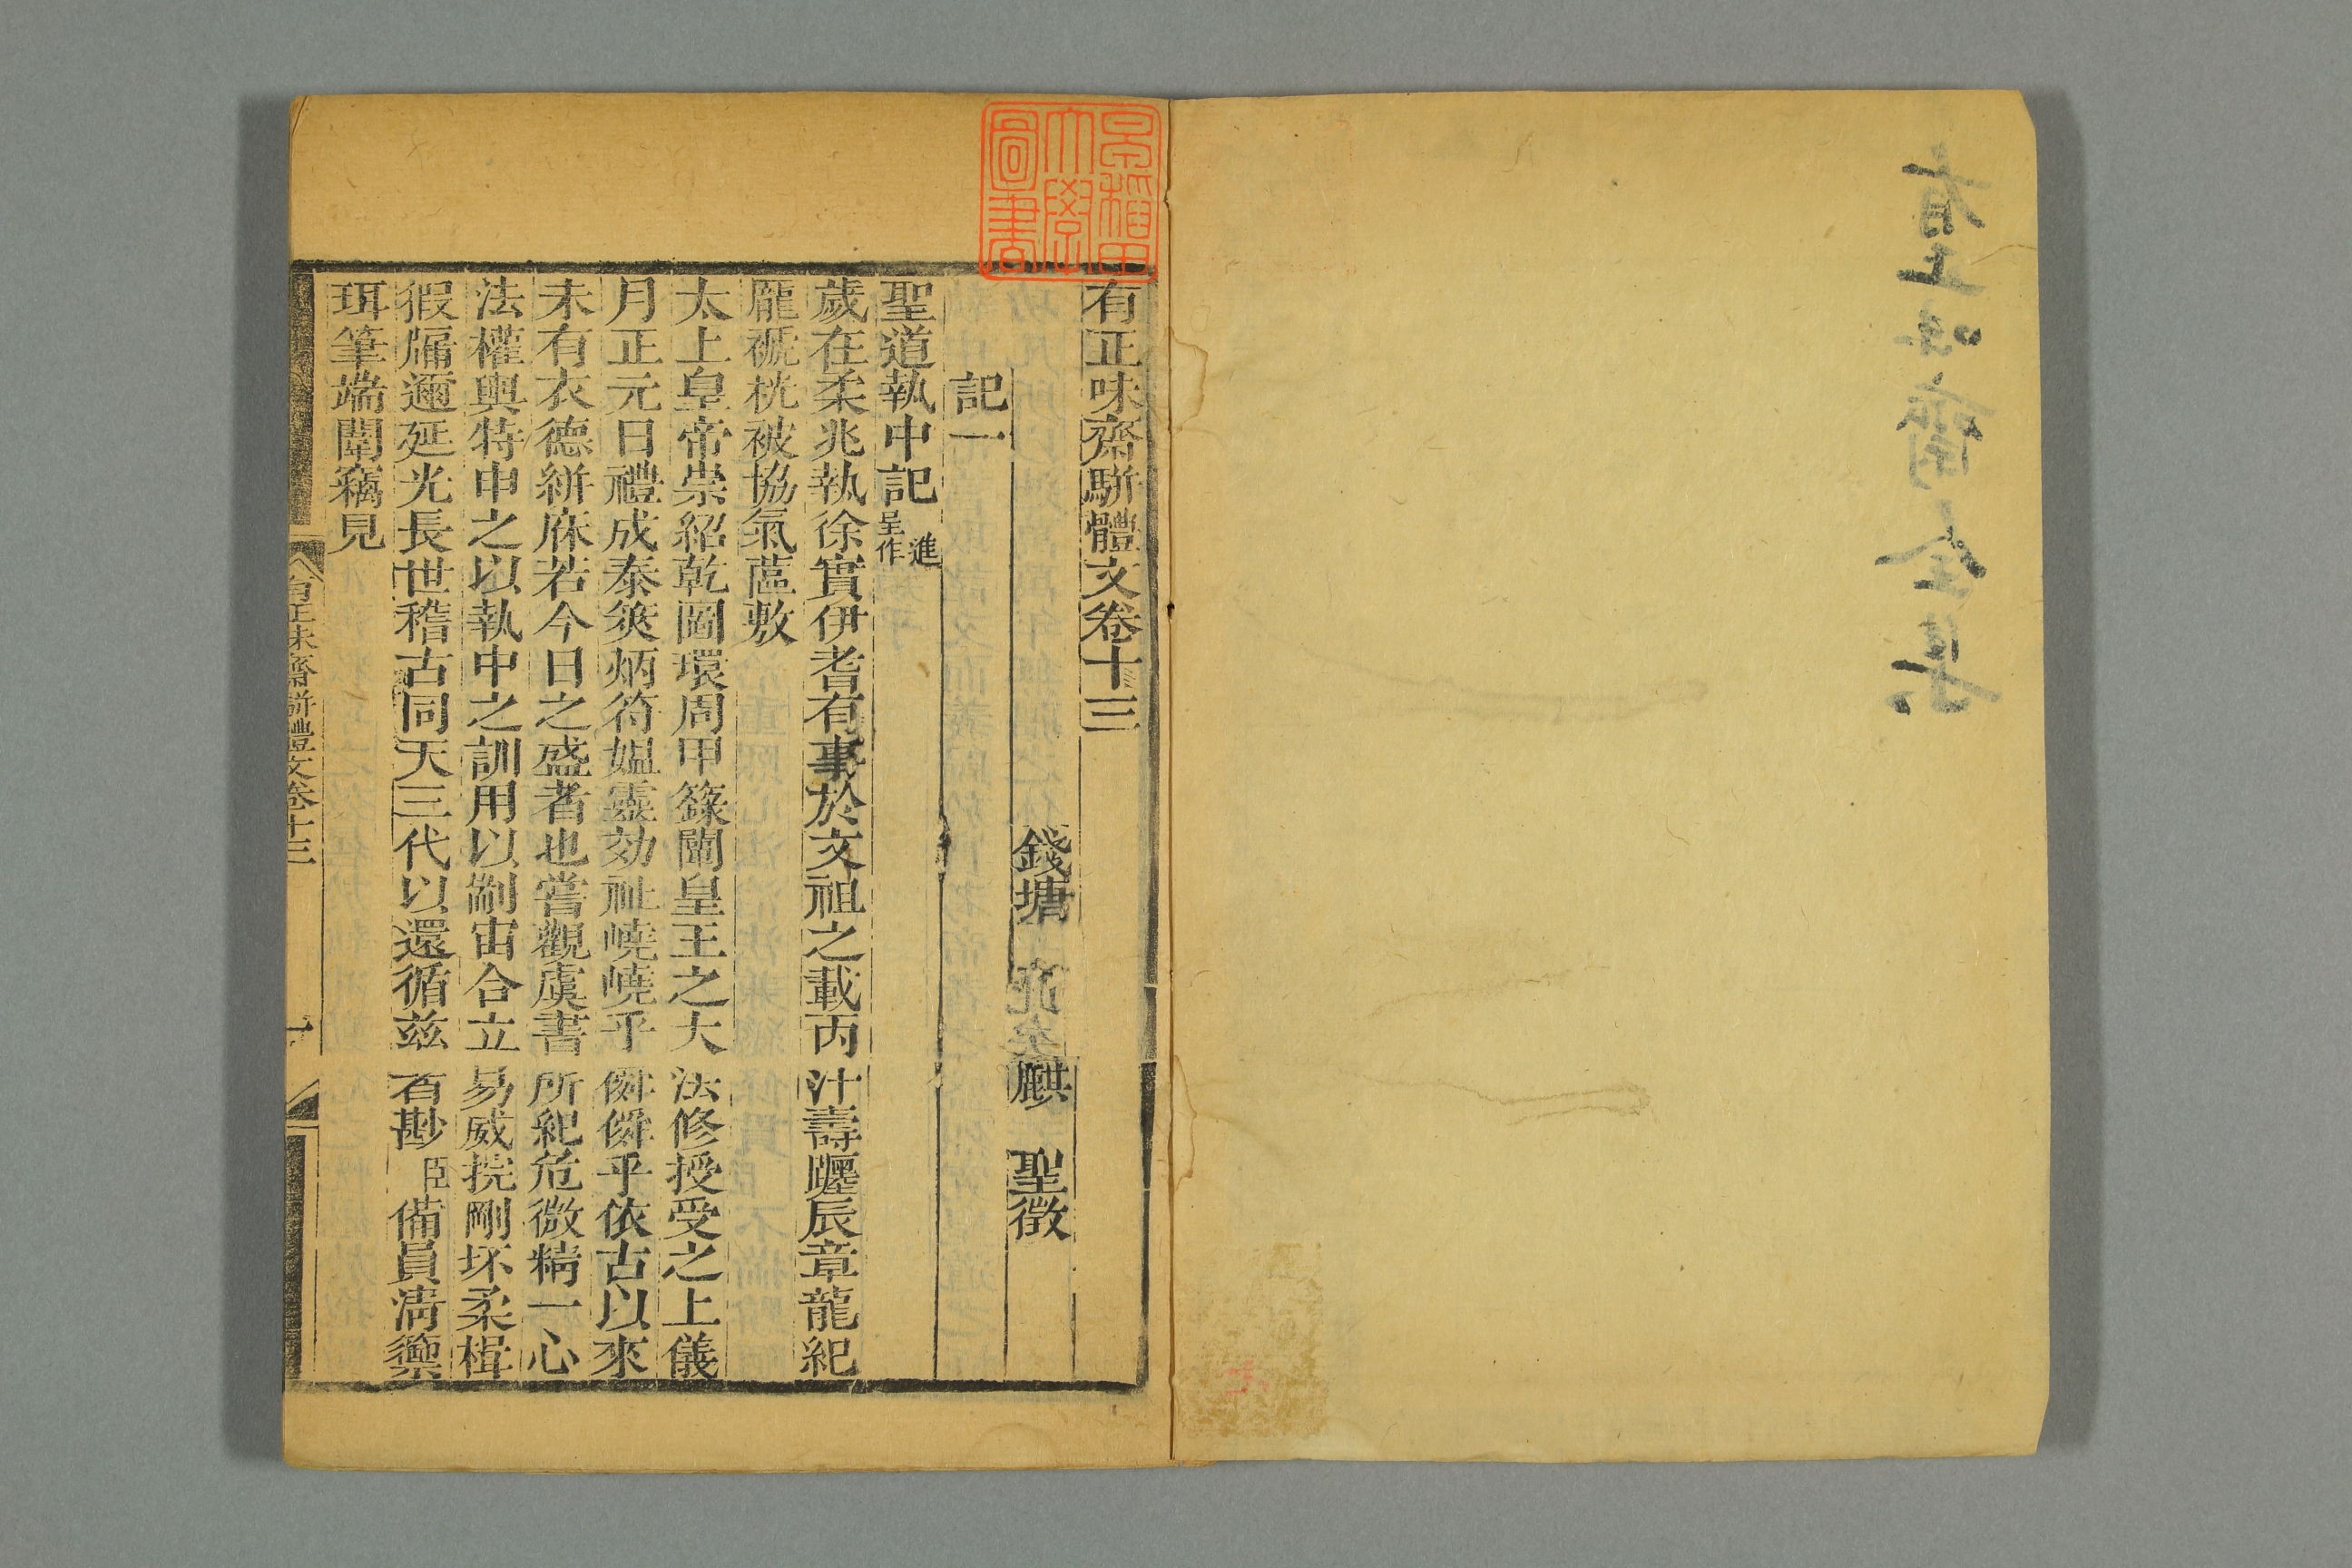 有正味齋全集
早稻田大學圖書
有正味齋駢體文卷十三
錢塘 麒 聖徵
記一
聖道執中記 進呈作
歲在柔兆執徐實伊耆有事於文祖之載丙汁壽躔辰章龍紀
龐褫桄被協氣蘊敷
太上皇帝崇紹乾圖環周甲籙闡皇王之大法修授受之上儀
月正元日禮成泰筴炳符媼靈効祉嶢嶢乎僢僢乎依古以來
未有衣德絣庥若今日之盛者也嘗觀虞書所紀危微精一心
法權輿特申之以執中之訓用以制宙合立易威捖剛坏柔楫
猳牖邇延光長世稽古同天三代以還循茲者尠臣備員淸籞
珥筆端闈竊見
有正味齋駢體文卷十三 一